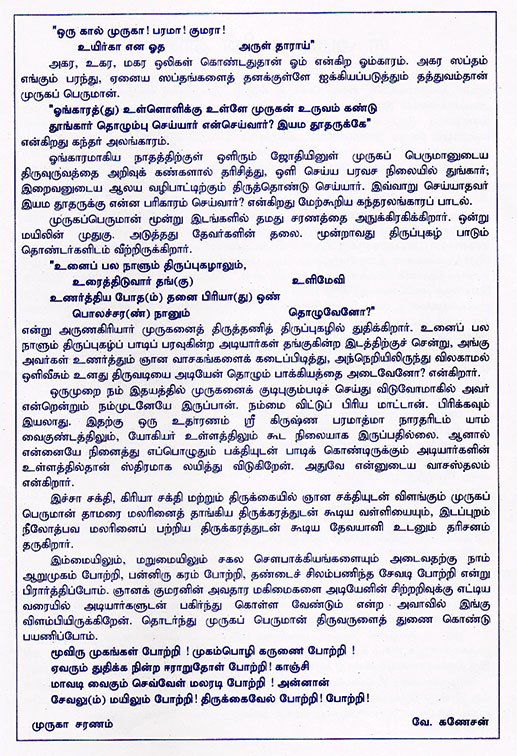 "ஒரு கால் முருகா! பரமா! குமரா!
உயிர்கா என ஓத அருள் தாராய்"
அகர, உகர, மகர ஒலிகள் கொண்டதுதான் ஓம் என்கிற ஓம்காரம். அகர ஸப்தம்
எங்கும் பரந்து, ஏனைய ஸப்தங்களைத் தனக்குள்ளே ஐக்கியப்படுத்தும் தத்துவம்தான்
முருகப் பெருமான்.
"ஓங்காரத்(து) உள்ளொளிக்கு உள்ளே முருகன் உருவம் கண்டு
தூங்கார் தொழும்பு செய்யார் என்செய்வார்? இயம தூதருக்கே"
என்கிறது கந்தர் அலங்காரம்.
ஓங்காரமாகிய நாதத்திற்குள் ஒளிரும் ஜோதியினுள் முருகப் பெருமானுடைய
திருவுருவத்தை அறிவுக் கண்களால் தரிசித்து, ஒளி செய்ய பரவச நிலையில் துங்கார்;
இறைவனுடைய ஆலய வழிபாட்டிற்கும் திருத்தொண்டு செய்யார். இவ்வாறு செய்யாதவர்
இயம தூதருக்கு என்ன பரிகாரம் செய்வார்? என்கிறது மேற்கூறிய கந்தரலங்காரப் பாடல்.
முருகப்பெருமான் மூன்று இடங்களில் தமது சரணத்தை அநுக்கிரகிக்கிறார். ஒன்று
மயிலின் முதுகு. அடுத்தது தேவர்களின் தலை. மூன்றாவது திருப்புகழ் பாடும்
தொண்டர்களிடம் வீற்றிருக்கிறார்.
"உனைப் பல நாளும் திருப்புகழாலும்,
உரைத்திடுவார் தங்(கு) உளிமேவி
உணர்த்திய போத(ம்) தனை பிரியா(து) ஒண்
பொலச்சர(ண்) நானும் தொழுவேனோ?"
என்று அருணகிரியார் முருகனைத் திருத்தணித் திருப்புகழில் துதிக்கிறார். உனைப் பல
நாளும் திருப்புகழ்ப் பாடிப் பரவுகின்ற அடியார்கள் தங்குகின்ற இடத்திற்குச் சென்று, அங்கு
அவர்கள் உணர்த்தும் ஞான வாசகங்களைக் கடைப்பிடித்து, அந்நெறியிலிருந்து விலகாமல்
ஒளிவீசும் உனது திருவடியை அடியேன் தொழும் பாக்கியத்தை அடைவேனோ? என்கிறார்.
ஒருமுறை நம் இதயத்தில் முருகனைக் குடிபுகும்படிச் செய்து விடுவோமாகில் அவர்
என்றென்றும் நம்முடனேயே இருப்பான். நம்மை விட்டுப் பிரிய மாட்டான். பிரிக்கவும்
இயலாது. இதற்கு ஒரு உதாரணம் ஸ்ரீ கிருஷ்ண பரமாத்மா நாரதரிடம் யாம்
வைகுண்டத்திலும், யோகியர் உள்ளத்திலும் கூட நிலையாக இருப்பதில்லை. ஆனால்
என்னையே நினைத்து எப்பொழுதும் பக்தியுடன் பாடிக் கொண்டிருக்கும் அடியார்களின்
உள்ளத்தில்தான் ஸ்திரமாக லயித்து விடுகிறேன். அதுவே என்னுடைய வாசஸ்தலம்
என்கிறார்.
இச்சா சக்தி, கிரியா சக்தி மற்றும் திருக்கையில் ஞான சக்தியுடன் விளங்கும் முருகப்
பெருமான் தாமரை மலரினைத் தாங்கிய திருக்கரத்துடன் கூடிய வள்ளியையும், இடப்புறம்
நீலோத்பவ மலரினைப் பற்றிய திருக்கரத்துடன் கூடிய தேவயானி உடனும் தரிசனம்
தருகிறார்.
இம்மையிலும், மறுமையிலும் சகல சௌபாக்கியங்களையும் அடைவதற்கு நாம்
ஆறுமுகம் போற்றி, பன்னிரு கரம் போற்றி, தண்டைச் சிலம்பணிந்த சேவடி போற்றி என்று
பிரார்த்திப்போம். ஞானக் குமரனின் அவதார மகிமைகளை அடியேனின் சிற்றறிவுக்கு எட்டிய
வரையில் அடியார்களுடன் பகிர்ந்து கொள்ள வேண்டும் என்ற அவாவில் இங்கு
விளம்பியிருக்கிறேன். தொடர்ந்து முருகப் பெருமான் திருவருளைத் துணை கொண்டு
பயணிப்போம்.
மூவிரு முகங்கள் போற்றி ! முகம்பொழி கருணை போற்றி !
ஏவரும் துதிக்க நின்ற ஈராறுதோள் போற்றி! காஞ்சி
மாவடி வைகும் செவ்வேள் மலரடி போற்றி ! அன்னான்
சேவலு(ம்) மயிலும் போற்றி! திருக்கைவேல் போற்றி! போற்றி!
முருகா சரணம் வே. கணேசன்